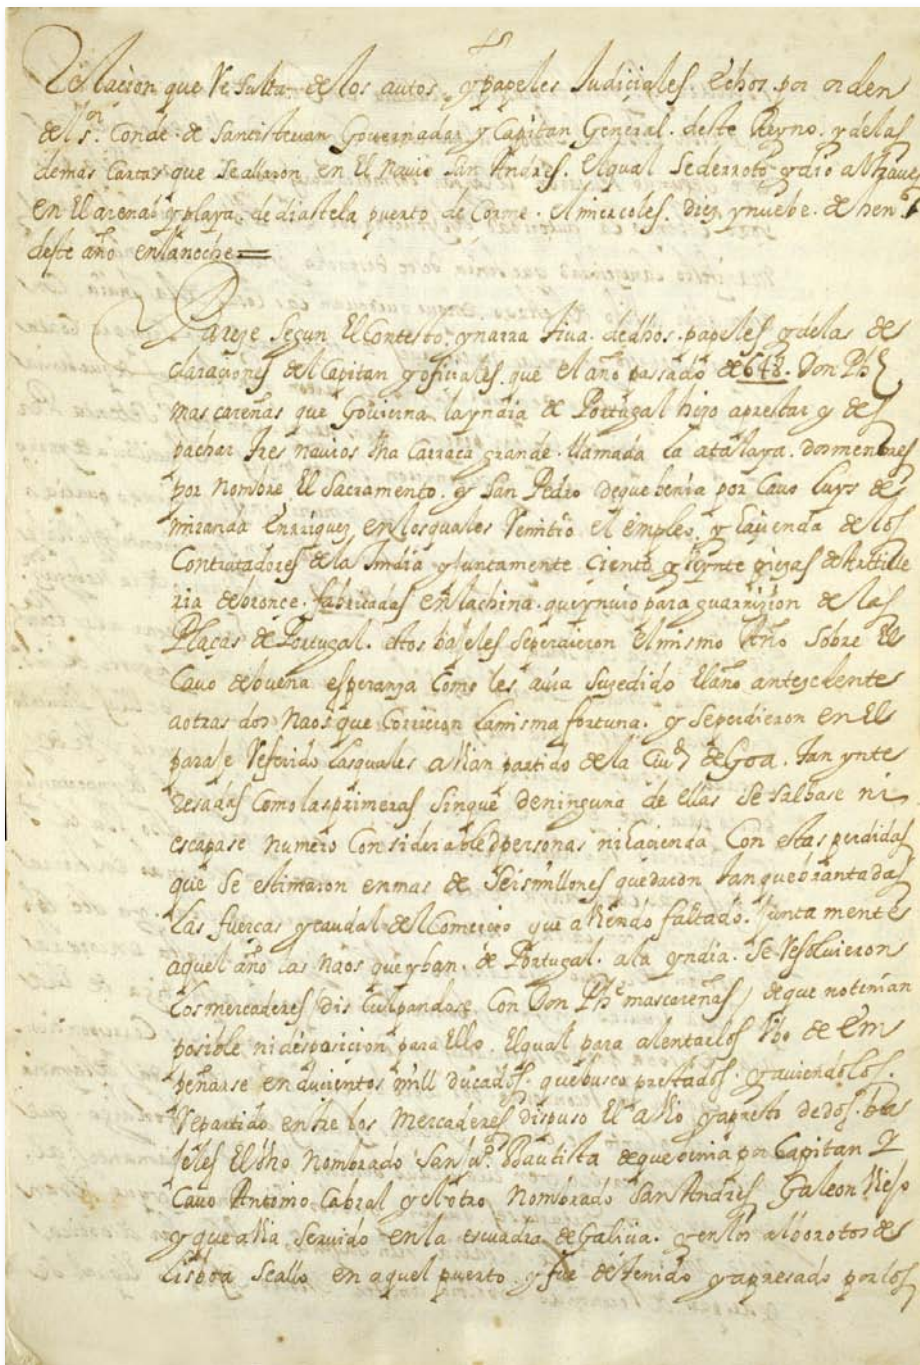 Relacion que Resulta de los autos y papeles Judiciales. Echos por orden
del s.or Conde de Santisteuan Gouernador y Capitan General deste Reyno y delas
demas Cartas que Seallaron en El Nauio San Andres. El qual Sederroto y dio altraues
en El arenal y playa de diastela puerto de Corme. el miercoles. Diez ynuebe de hen.o
deste año enlanoche
Pareze Segun El Contesto ynarra tiua dedhos papeles y delas de
claraciones del Capitan y ofiziales que el año passado de 648. Don Phe
mascareñas que Gouierna layndia de Portugal hizo aprestar y des
pachar tres nauios Vna Carraca grande llamada la atalaya. dosmenores
por nombre El Sacramento y San Pedro dequebenia por Cauo Luys de
miranda Enrriquez enlosquales Remitio el empleo y haçienda delos
Contratadores dela India y Juntamente Ciento y veynte piezas deArtille
ria debronce fabricadas enlachina queynuio para guarnizion de las
Plaças de Portugal. estos bajeles Seperdieron El mismo Año Sobre El
Cauo debuena esperanza Como les auia Suzedido Elaño antezedente
aotras dos Naos que Corrieron lamisma fortuna. y Seperdieron en El
paraje Referido lasquales auian partido dela Ciud deGoa. tan ynte
resadas Como lasprimeras Sinque deninguna de ellas Se salbase ni
escapase numero Considerable dpersonas nihacienda Con estas perdidas
que Se estimaron enmas de Seismillones quedaron tan quebrantadas
Las fuercas ycaudal del Comerzio que auiendo faltado. Juntamente
aquel año las Naos queyban de Portugal. ala yndia. Se Resoluieron
Los mercaderes (dis culpandose Con Don Phe mascareñas) deque notenian
posible nidisposicion para Ello. Elqual para alentarlos Vbo de Em
peñarse en ducientos mill ducados quebusco prestados yauiendolos
Repartido entre los Mercaderes dispuso El auio yapresto dedos ba
jeles El Vno Nombrado San Ju.o Bautista dequevenia por Capitan y
Cauo Antonio Cabral y el otro Nombrado San Andres Galeon Viejo
y que auia Seruido en la escuadra deGalicia. y enlos alborotos de
Lisboa Seallo en aquel puerto y fue detenido yapresado por los